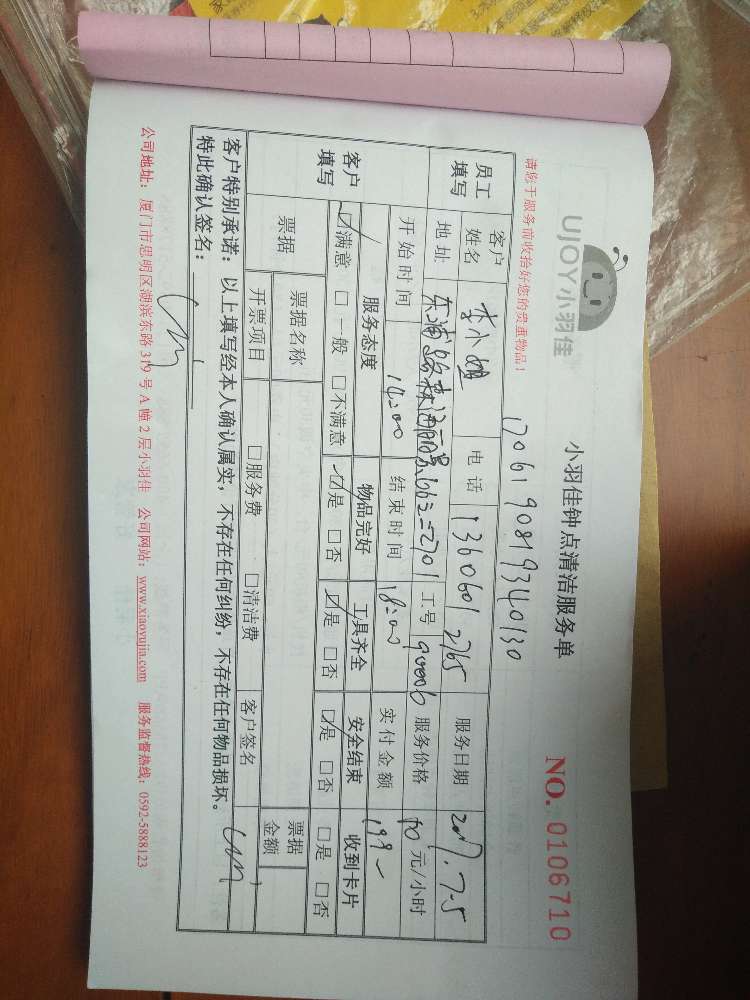 UJOY小羽佳
小羽佳钟点清洁服务单
NO. 0106710
请您于服务前收拾好您的贵重物品！
1706190819340130
员工填写 客户姓名 李小姐 电话 13606012765 服务日期 2017.7.5
地址 东浦路森海丽景1662-2701 工号 90006 服务价格 元/小时
开始时间 14:00 结束时间 18:00 实付金额 199-
客户填写 服务态度 物品完好 工具齐全 安全结束 收到卡片
☑满意 □一般 □不满意 ☑是 □否 ☑是 □否 ☑是 □否 □是 □否
票据 票据名称 票据金额
开票项目 □服务费 □清洁费 客户签名
客户特别承诺：以上填写经本人确认属实，不存在任何纠纷，不存在任何物品损坏。
特此确认签名：
公司地址：厦门市思明区湖滨东路319号A幢2层小羽佳 公司网站：www.xiaoyujia.com 服务监督热线：0592-5888123